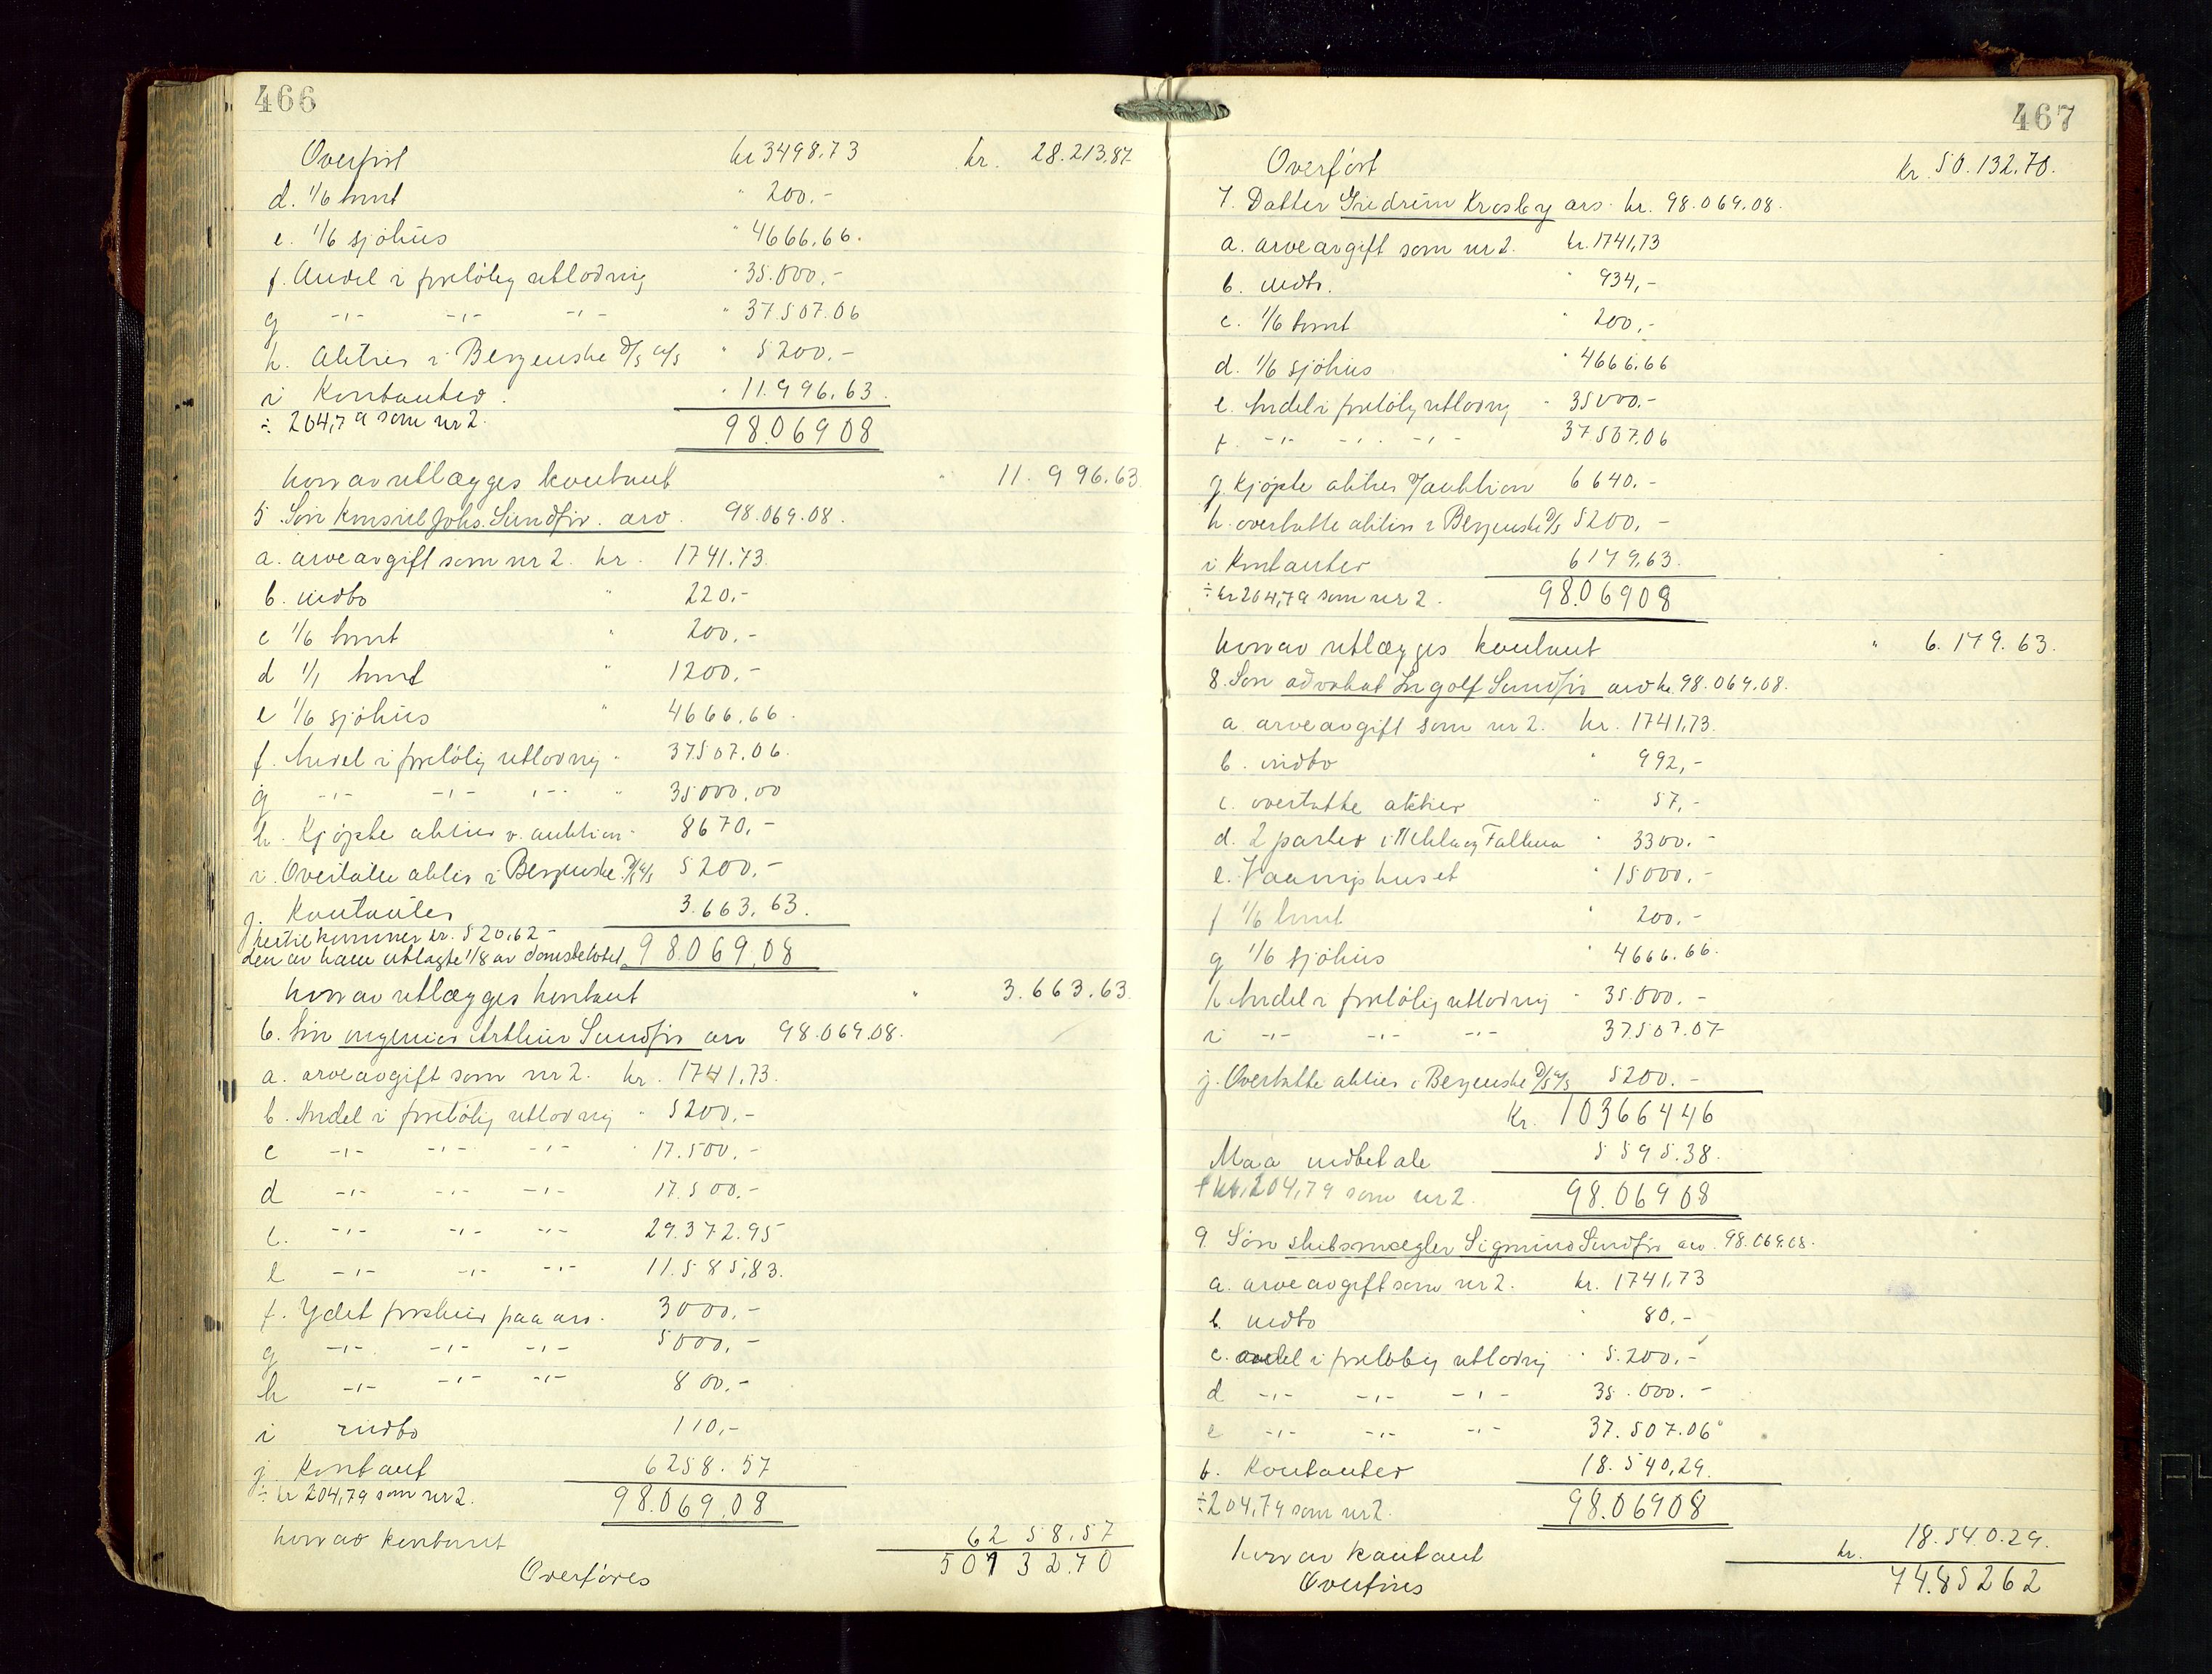 466
Overført kr 3498,73 kr. 28.213,87
d. 1/6 tomt " 200,-
e. 1/6 sjöhus " 4666,66.
f. Andel i foreløbig utlodning " 35.000,-
g -"- -"- -"- " 37.507.06
h. Aktier i Bergenske D/S A/S " 5200,-
i Kontanter. " 11.996,63.
÷ 204,79 som nr 2. 98.069 08
hvorav utlægges kontant " 11.996.63
5. Søn Konsul Johs. Sundfør. arv. 98.069.08.
a. arveavgift som nr 2. kr. 1741.73.
b. indbo " 220,-
c 1/6 tomt " 200,-
d 1/1 tomt " 1200,-
e 1/6 sjöhus " 4666,66.
f. Andel i foreløbig utlodning " 37507,06.
g -"- -"- -"- " 35000,00
h. Kjöpte aktier v. auktion " 8670,-
i. Overtatte aktier i Bergenske D/S A/S 5200,-
j. Kontanter 3.663,63.
hertil kommer kr. 520,62 -
den av ham utlagte 1/8 av 98.069,08
hvorav utlægges kontant " 3.663,63.
6. Søn ingeniør Arthur Sundfør arv 98.069.08.
a. arveavgift som nr 2. kr. 1741,73.
b. Andel i foreløbig utlodning " 5200,-
c -"- -"- -"- " 17.500.-
d -"- -"- -"- 17.500.-
e. -"- -"- -"- 29.372.95
e -"- -"- -"- 11.585,83.
f. Ydet forskud paa arv. 3000,-
g -"- -"- -"- 5000,-
h -"- -"- -"- 800.-
i indbo 110,-
j. Kontant 6258.57
÷ kr 204,79 som nr 2. 98.069,08
hvorav kontant 6258,57
Overføres 50132.70
467
Overført kr. 50.132,70.
7. Datter Krosby arv. kr. 98.069.08.
a. arveavgift som nr 2. kr. 1741,73
b. indbo. " 934,-
c. 1/6 tomt " 200,-
d. 1/6 sjöhus " 4666,66
e. Andel i foreløbig utlodning " 35000.-
f. -"- -"- -"- 37507,06
g. Kjöpte aktier v/auktion 6640.-
h. overtatte aktier i Bergenske D/S 5200,-
i Kontanter 6179,63.
÷ kr 204,79 som nr 2. 98.06908
hvorav utlægges kontant " 6.179.63.
8. Søn advokat Ingolf Sundfør arv kr. 98.069.08.
a arveavgift som nr 2. kr. 1741,73.
b. indbo " 992,-
c. overtatte aktier " 57,-
d. 2 parter i og Falken " 3300.-
e. Vaaningshuset " 15000.-
f 1/6 tomt " 200.-
g 1/6 sjöhus " 4666.66.
h Andel i foreløbig utlodning " 35.000.-
i -"- -"- -"- 37.507.07
j. Overtatte aktier i Bergenske D/S A/S 5200.-
Kr. 10366446
Maa indbetale 5595.38.
+ kr. 204,79 som nr 2. 98.06908
9. Søn skibsmægler Sigmund Sundfør arv. 98.069.08.
a. arveavgift som nr 2. kr. 1741,73
b. indbo " 80,-
c. andel i foreløbig utlodning " 5.200,-
d -"- -"- -"- 35.000.-
e -"- -"- -"- 37.507.06
f. Kontanter 18.540,29.
÷ 204,79 som nr 2. 98.06908
hvorav kontant kr. 18.540.29.
Overføres 74.85262